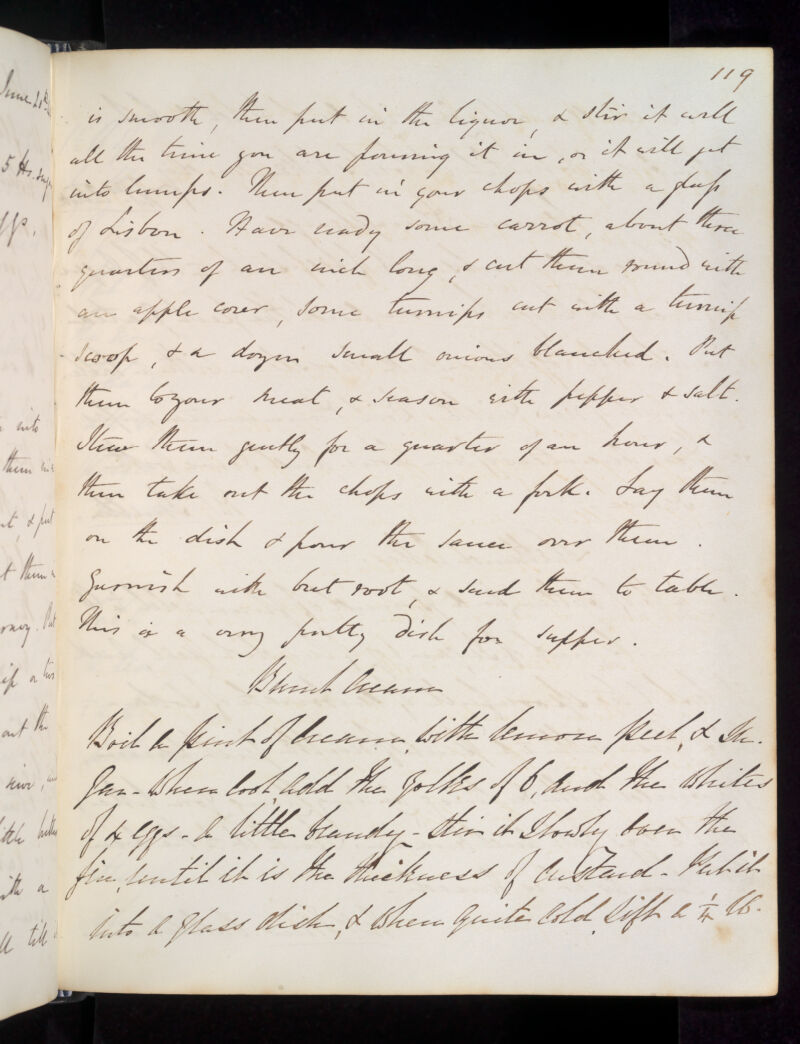 119
is smooth, then put in the liquor, & stir it well
all the time you are pouring it in, or it will get
into lumps. Then put in your chops with a glass
of Lisbon. Have ready some carrot, about three
quarters of an inch long, & cut them round with
an apple corer, some turnips cut with a turnip
scoop, & a dozen small onions blanched. Put
them to your meat, & season with pepper & salt.
Stew them gently for a quarter of an hour, &
then take out the chops with a fork. Lay them
on the dish & pour the sauce over them.
Garnish with beet root, & send them to table.
This is a very pretty dish for supper.
Burnt Cream
Boil a pint of Cream, with lemon peel, & Su-
gar - When cool add the yolks of 6, and the Whites
of 4 eggs - a little brandy - Stir it slowly over the
fire, until it is the thickness of Custard - Put it
into a glass dish, & when quite cold, sift a 1/4 lb.
June
5
sugar
into
them
& put
them
Put
out the
a
till